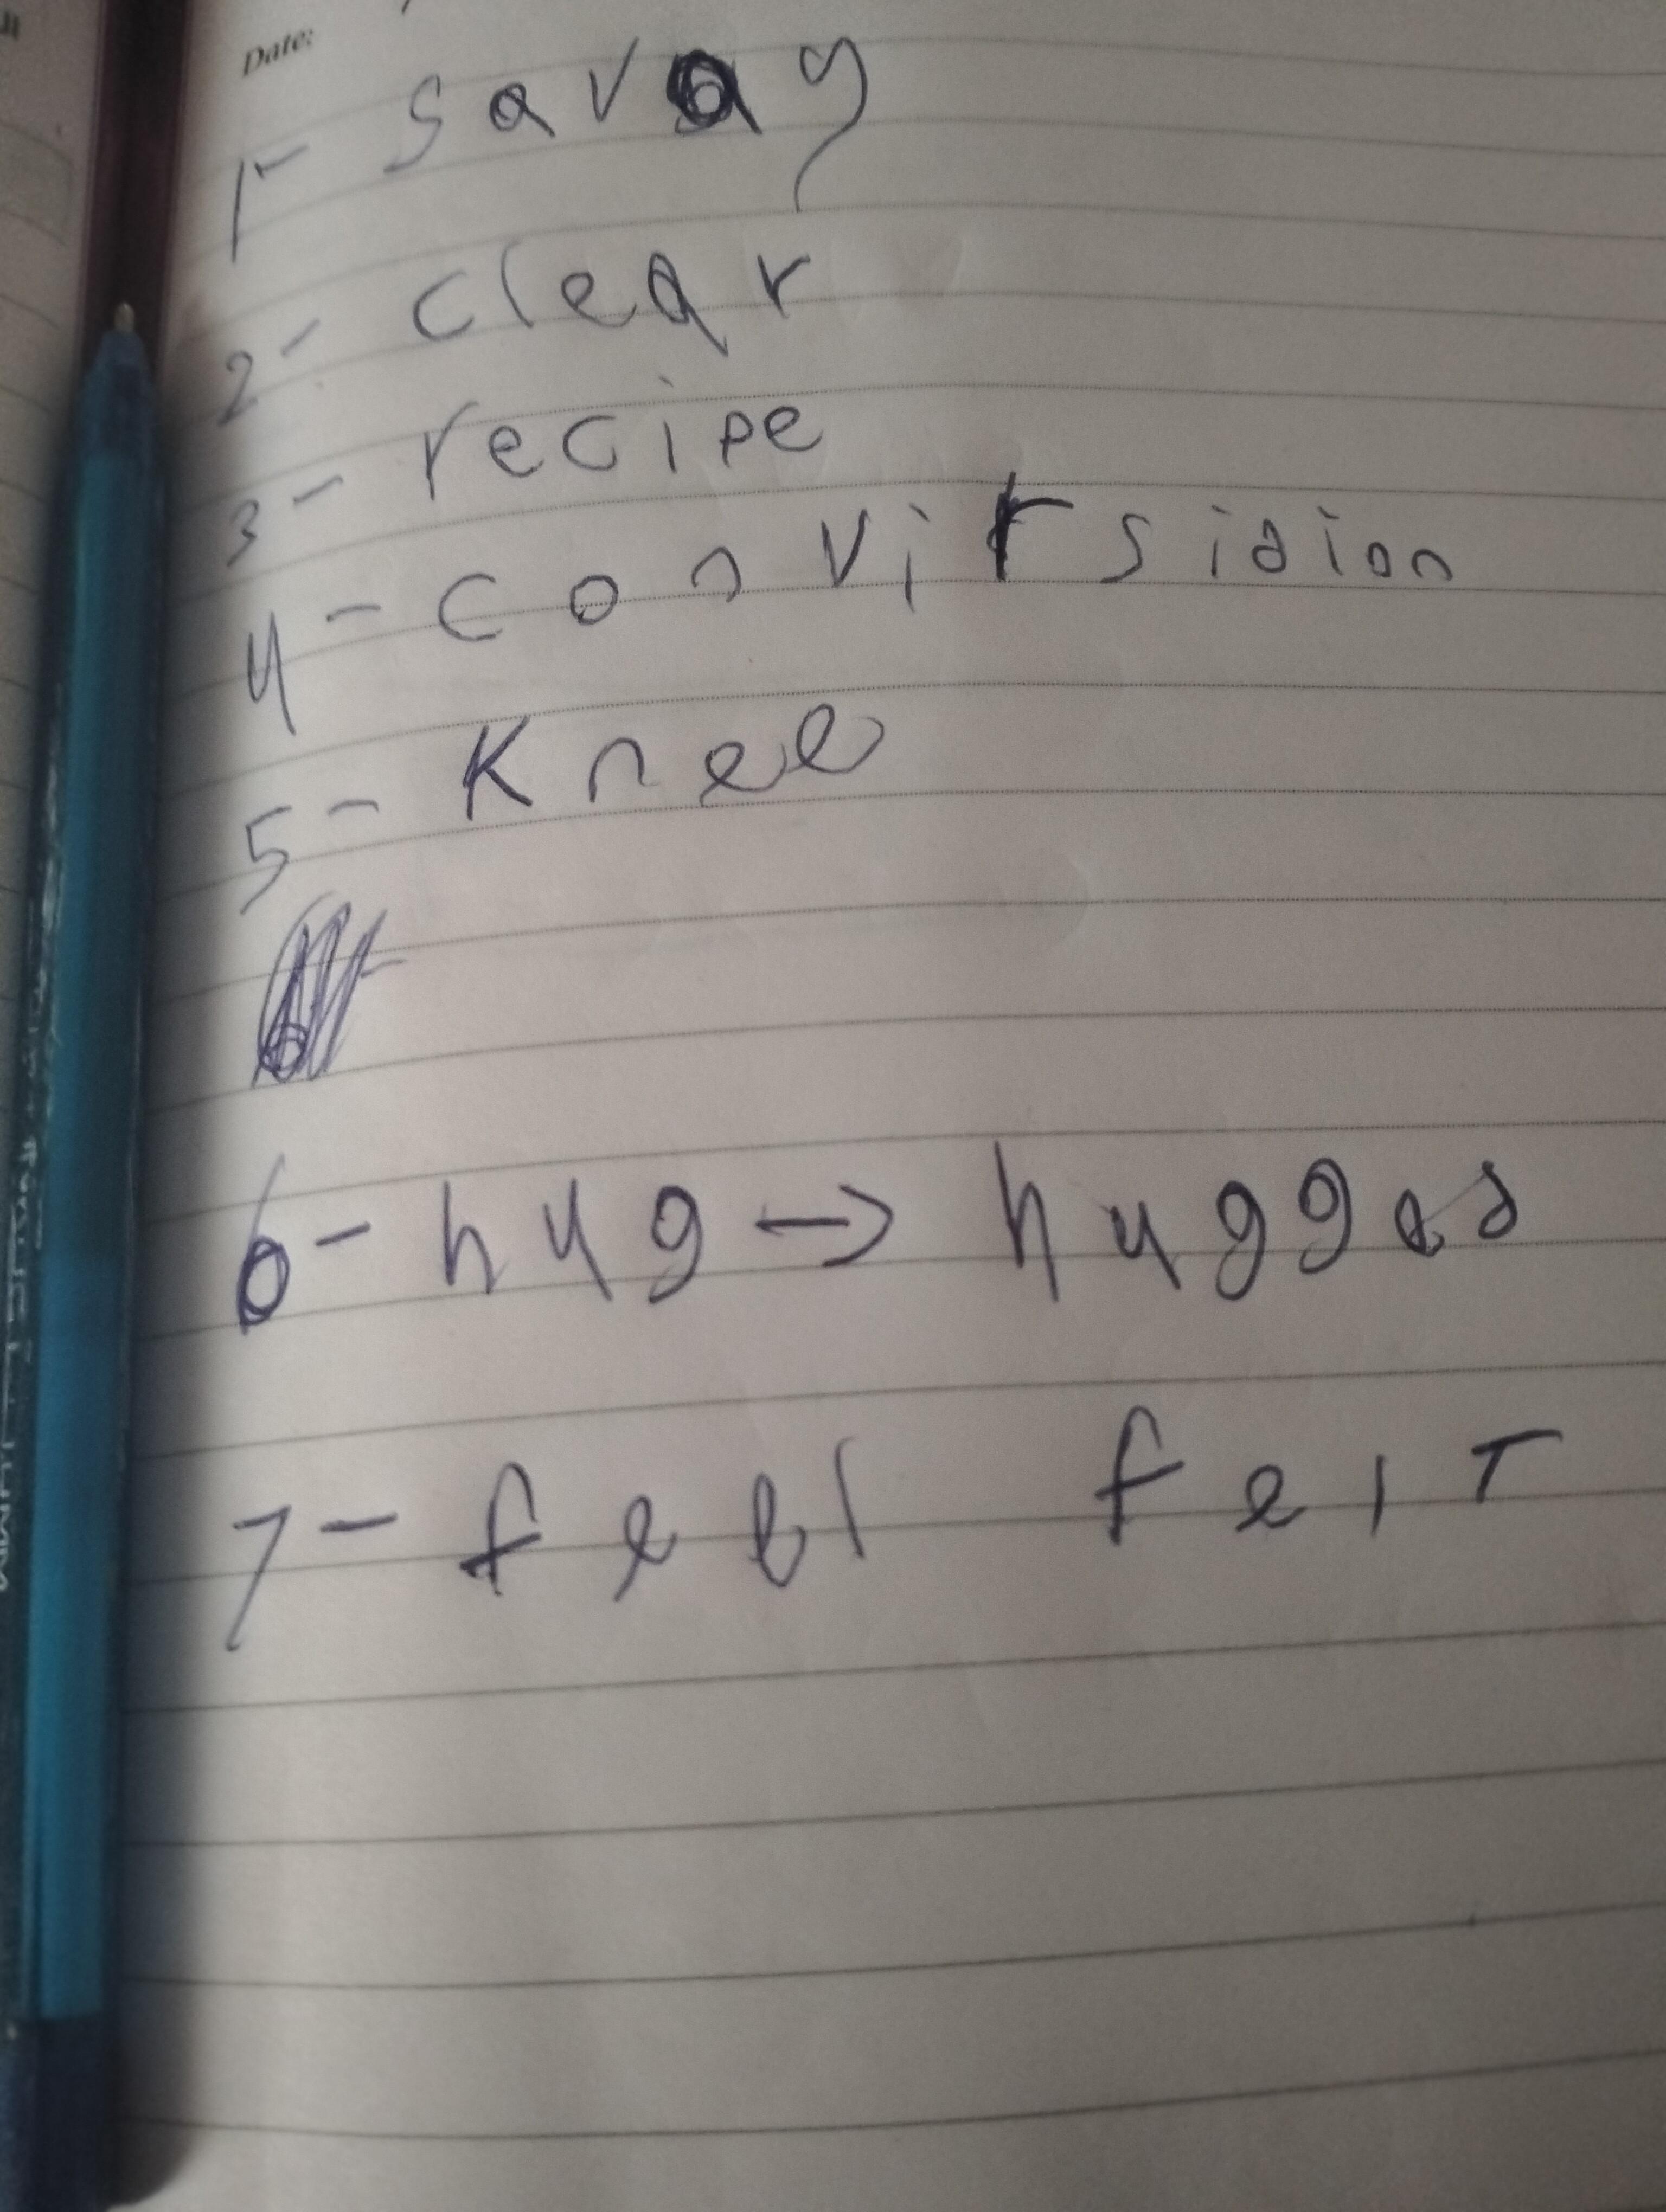 Date:
1- savay
2- clear
3- recipe
4- convirsidion
5- Knee
6- hug → hugged
7- feel felt